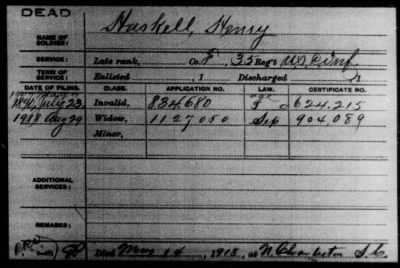 DEAD
NAME OF SOLDIER: Haskell, Henry
SERVICE: Late rank, Co. F, 35 Reg't U.S.C. Inf.
TERM OF SERVICE: Enlisted , 1 Discharged , 1
DATE OF FILING. CLASS. APPLICATION NO. LAW. CERTIFICATE NO.
July 23, Invalid, 834680 624.215
1918 Aug 29 Widow, 1127050 904.089
Minor,
ADDITIONAL SERVICES:
REMARKS:
Died May 14, 1918, at N. Charleston S.C.